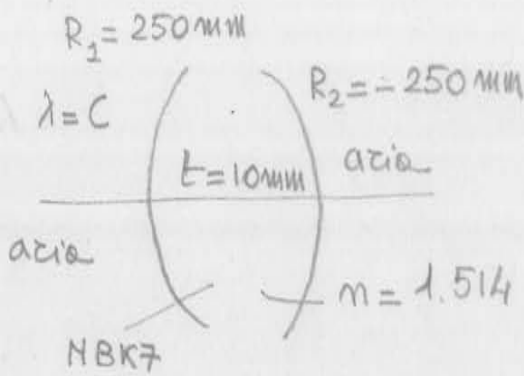 R₁ = 250 mm
λ = C
R₂ = - 250 mm
t = 10 mm
aria
aria
n = 1.514
NBK7